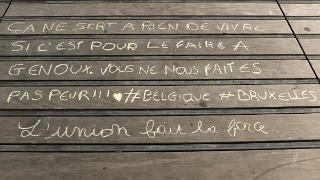 ÇA NE SERT A RIEN DE VIVRE
SI C'EST POUR LE FAIRE A
GENOUX. VOUS NE NOUS FAITES
PAS PEUR!!! ♥ #BELGIQUE #BRUXELLES
L'union fait la force.